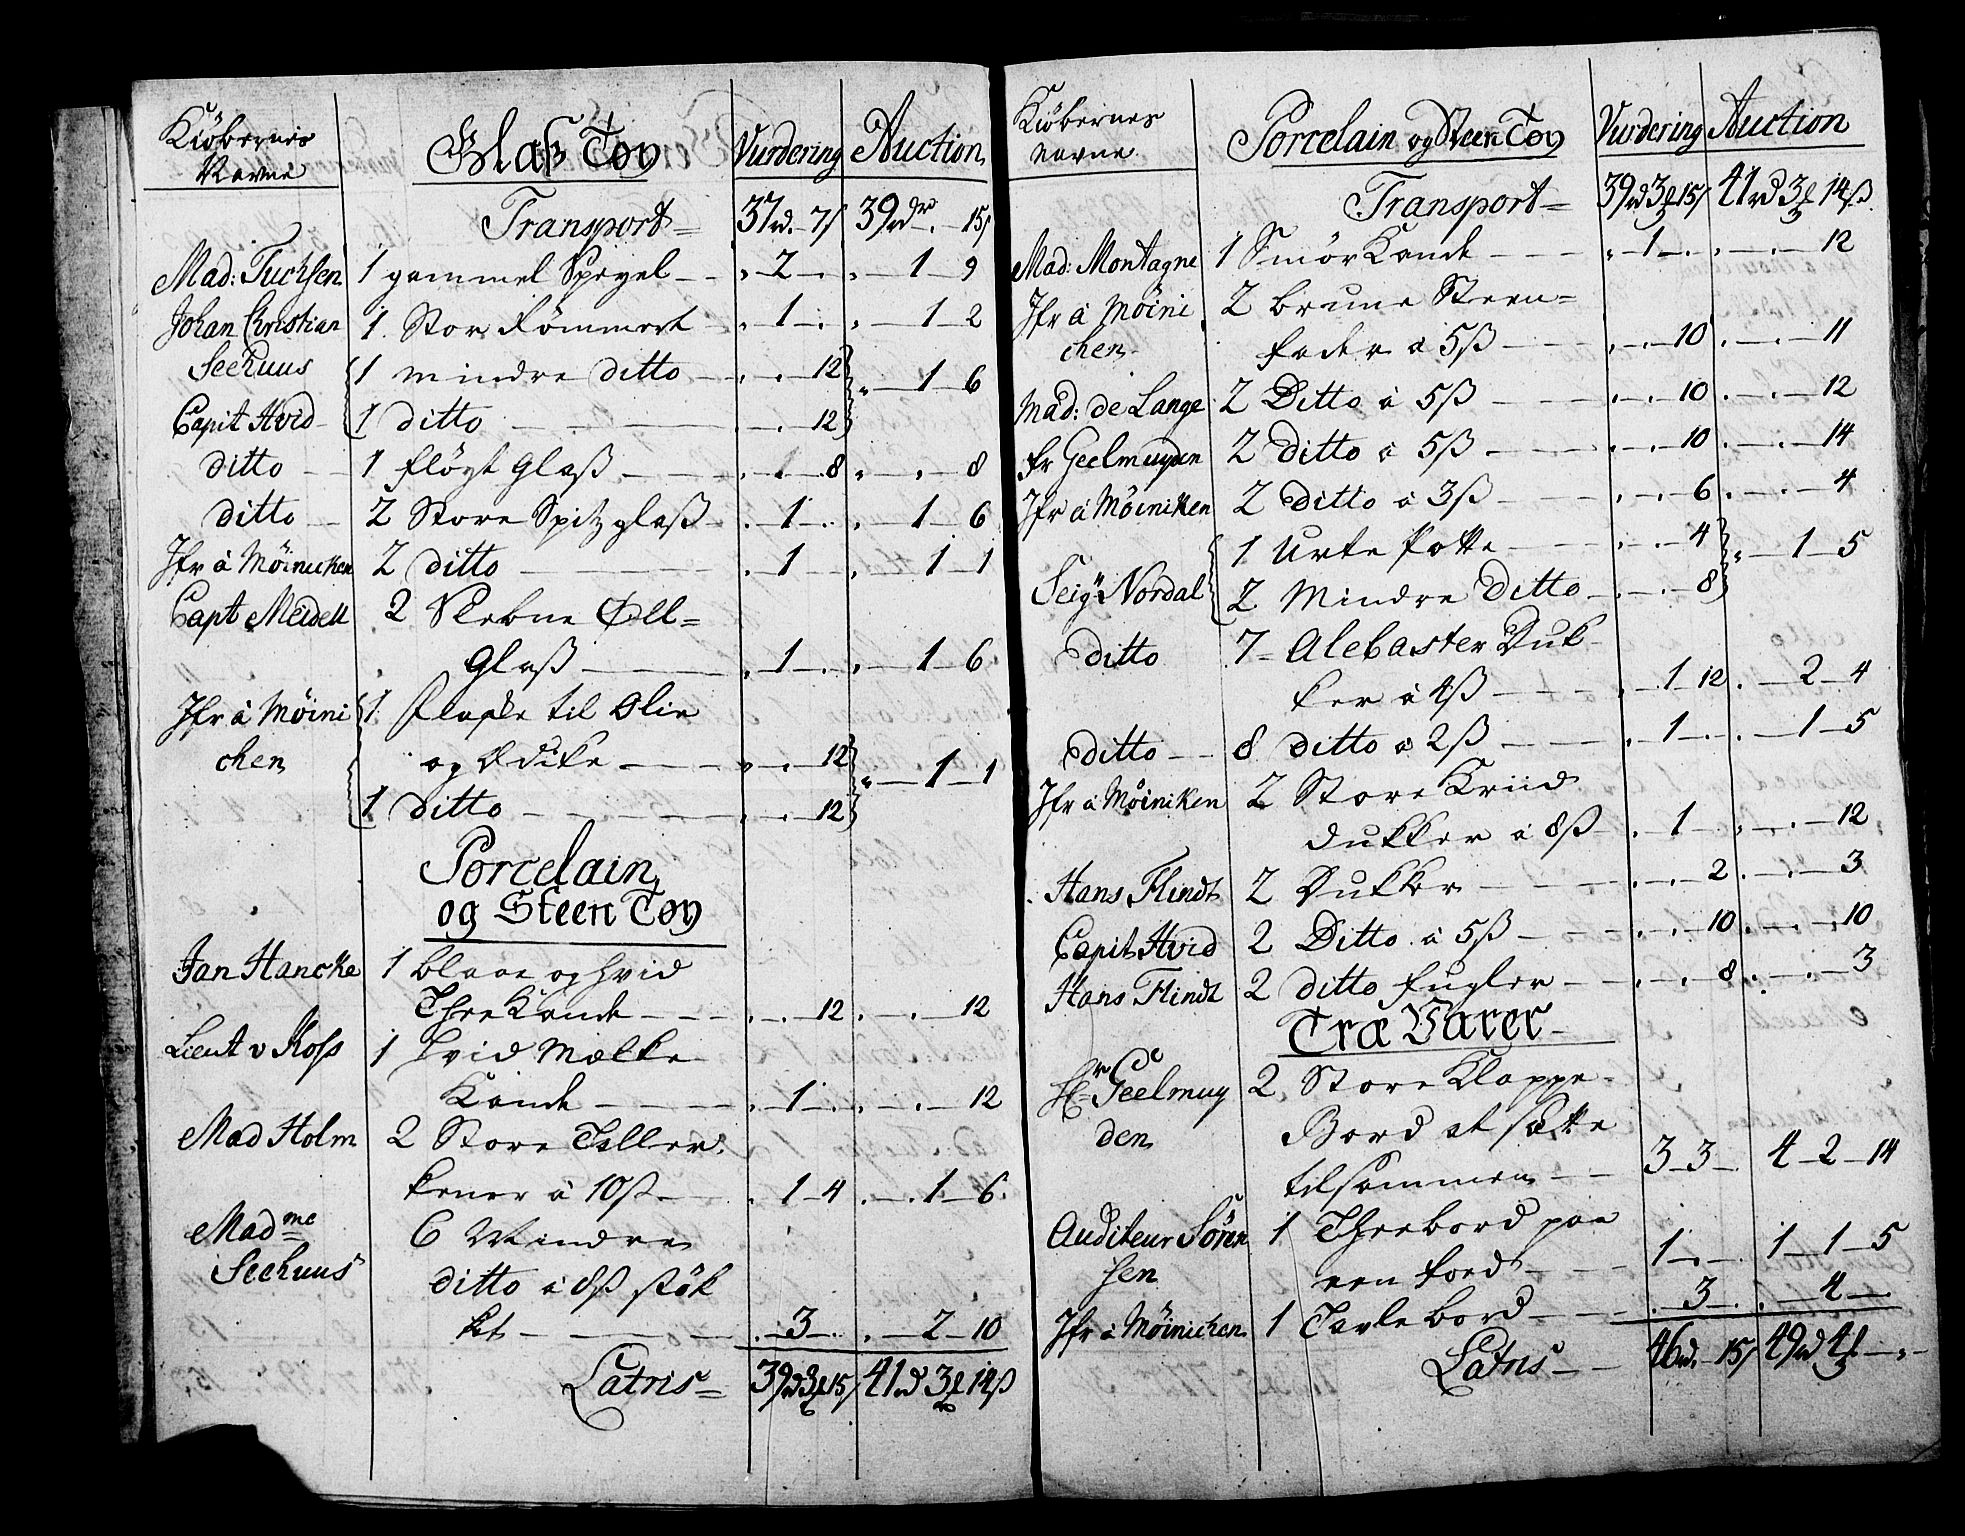 Kiøbernis Navne | Glaß Tøy | Vurdering | Auction
Transport= 37rd. - 7ß 39rdr. - 15ß
Mad: Tuchsen 1 gammel Speyel - 2 - 1 - 9
Johan Christian 1 Stor Fømmert - 1 - 1 - 2
Seehuus 1 mindre ditto - 12 1 - 6
Capit Hvid 1 ditto - 12
ditto 1 fløyt Glaß - 8 - 8
ditto 2 Store Spitzglaß - 1 - 1 - 6
Jfr á Møinichen 2 ditto - 1 - 1 - 1
Capt Meidell 2 Slebne Øll=
Glaß - 1 - 1 - 6
Jfr á Møini 1 Flaske til Olie
chen og Edike - 12 - 1 - 1
1 ditto - 12
Porcelain,
og Steen Tøy
Jan Hancke 1 blaae og hvid
Thee Kande - 12 - 12
Lieut v Koss 1 hvid Melke
Kande - 1 - 12
Mad Holm 2 Store Taller=
kener á 10ß - 1 - 4 - 1 - 6
Madme 6 Mindre
Seehuus ditto á 8ß støk
ket - 3 - 2 - 10
Latris= 39rd 3 15ß 41rd 3 14ß
Kiøbernes navne | Porcelain og Steen Tøy | Vurdering | Auction
Transport= 39rd 3 15ß 41rd 3 14ß
Mad: Montagne 1 Smør Kande - 1 - 12
Jfr á Møini 2 brune Steen=
chen fader á 5ß - 10 - 11
Mad: de Lange 2 Ditto á 5ß - 10 - 12
fr Geelmuyden 2 ditto á 5ß - 10 - 14
Jfr á Møiniken 2 ditto á 3ß - 6 - 4
1 Urte Potte - 4 - 1 - 5
Seigr Nordal 2 Mindre Ditto - 8
ditto 7 Alebaster Duk
ker á 4ß - 1 - 12 - 2 - 4
ditto 8 ditto á 2ß - 1 - 1 - 5
Jfr á Møiniken 2 Store Kriid
dukker á 8ß - 1 - 12
Hans Flindt 2 Dukker - 2 - 3
Capit Hvid 2 Ditto á 5ß - 10 - 10
Hans Flindt 2 ditto fugler - 8 - 3
Træ Varer
Hr Geelmuy 2 Store Klappe
den Bord at sætte
tilsammen 3 - 3 - 4 - 2 - 14
Auditeur Søren 1 Theebord paa
sen een foed - 1 - 1 - 1 - 5
Jfr á Møinichen 1 Tavle bord - 3 - 4
Latris 46rd. - 15ß 49rd 4